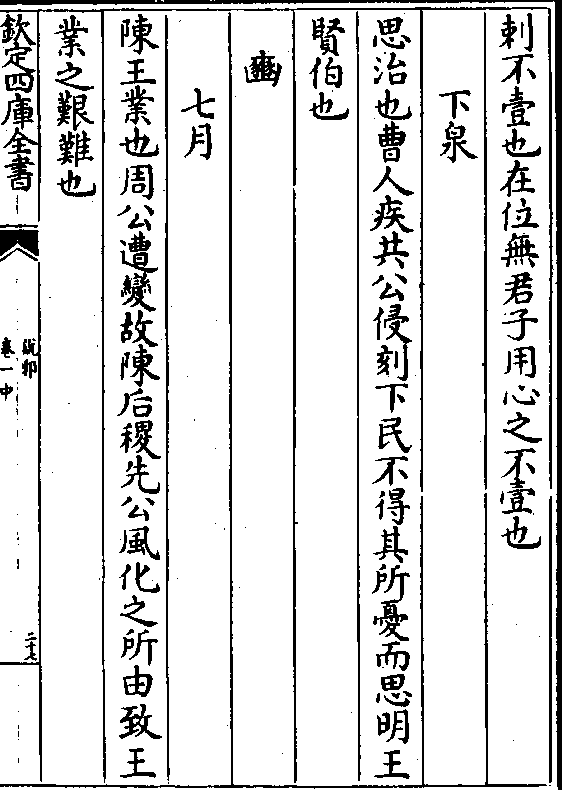 刺不壹也在位無君子用心之不壹也
下泉
思治也曹人疾共公侵刻下民不得其所憂而思明王
賢伯也
豳
七月
陳王業也周公遭變故陳后稷先公風化之所由致王
業之艱難也
欽定四庫全書
說郛
卷一中
二十七